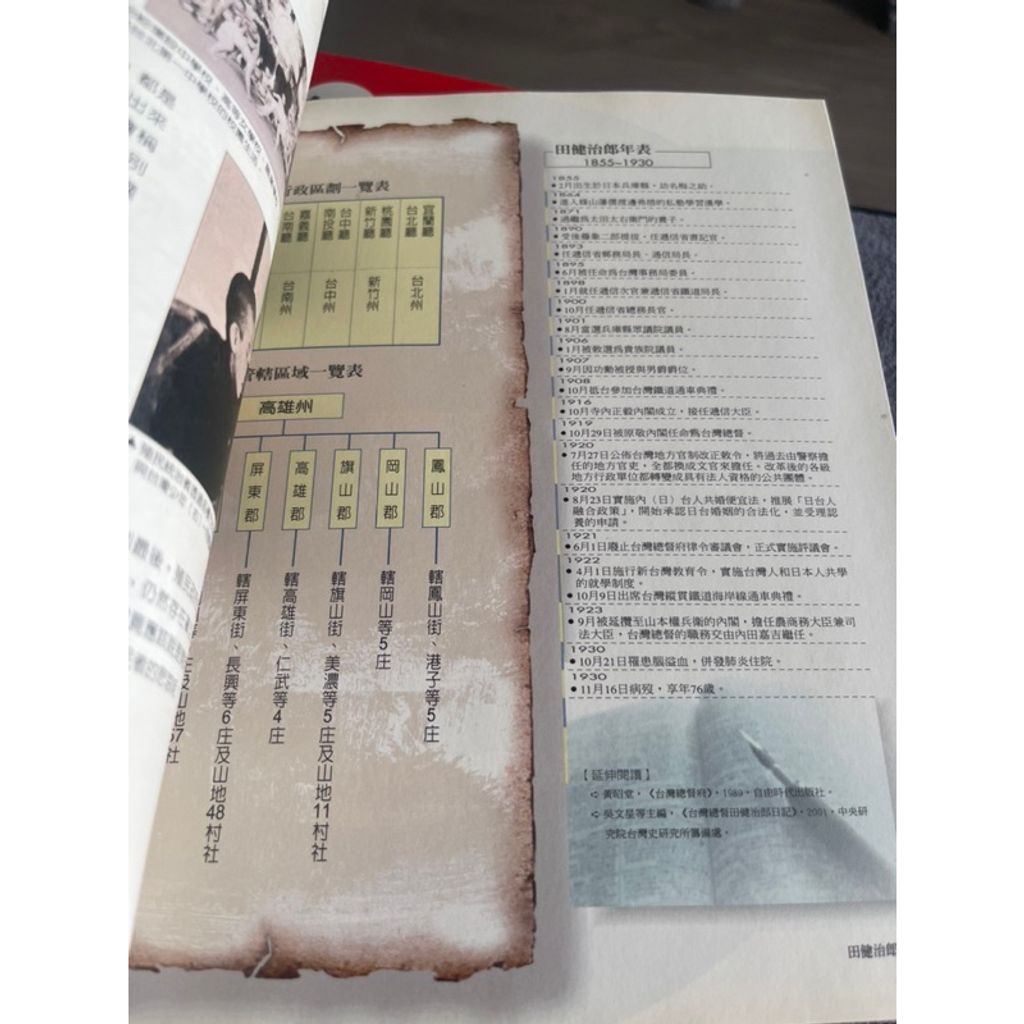 行政區劃一覽表
宜蘭廳
台北廳
桃園廳
新竹廳
台中廳
南投廳
嘉義廳
台南廳
台北州
新竹州
台中州
台南州
管轄區域一覽表
高雄州
鳳山郡
岡山郡
旗山郡
高雄郡
屏東郡
轄鳳山街、港子等5庄
轄岡山等5庄
轄旗山街、美濃等5庄及山地11村社
轄高雄街、仁武等4庄
轄屏東街、長興等6庄及山地48村社
田健治郎年表
1855~1930
1855
●2月出生於日本兵庫縣,幼名梅之助。
1864
●進入篠山藩儒渡邊弗措的私塾學習漢學。
1871
●過繼為太田太右衛門的養子。
1890
●受後藤象二郎提拔,任遞信省書記官。
1893
●任遞信省郵務局長、通信局長。
1895
●6月被任命為台灣事務局委員。
1898
●1月就任遞信次官兼遞信省鐵道局長。
1900
●10月任遞信省總務長官。
1901
●8月當選兵庫縣眾議院議員。
1906
●1月被敕選為貴族院議員。
1907
●9月因功勳被授與男爵爵位。
1908
●10月抵台參加台灣鐵道通車典禮。
1916
●10月寺內正毅內閣成立,接任遞信大臣。
1919
●10月29日被原敬內閣任命為台灣總督。
1920
●7月27日公佈台灣地方官制改正敕令,將過去由警察擔
任的地方官吏,全都換成文官來擔任。改革後的各級
地方行政單位都轉變成具有法人資格的公共團體。
1920
●8月23日實施內(日)台人共婚便宜法,推展「日台人
融合政策」,開始承認日台婚姻的合法化,並受理認
養的申請。
1921
●6月1日廢止台灣總督府律令審議會,正式實施評議會。
1922
●4月1日施行新台灣教育令,實施台灣人和日本人共學
的就學制度。
●10月9日出席台灣縱貫鐵道海岸線通車典禮。
1923
●9月被延攬至山本權兵衛的內閣,擔任農商務大臣兼司
法大臣,台灣總督的職務交由內田嘉吉繼任。
1930
●10月21日罹患腦溢血,併發肺炎住院。
1930
●11月16日病歿,享年76歲。
【延伸閱讀】
➪黃昭堂,《台灣總督府》,1989,自由時代出版社。
➪吳文星等主編,《台灣總督田健治郎日記》,2001,中央研
究院台灣史研究所籌備處。
田健治郎